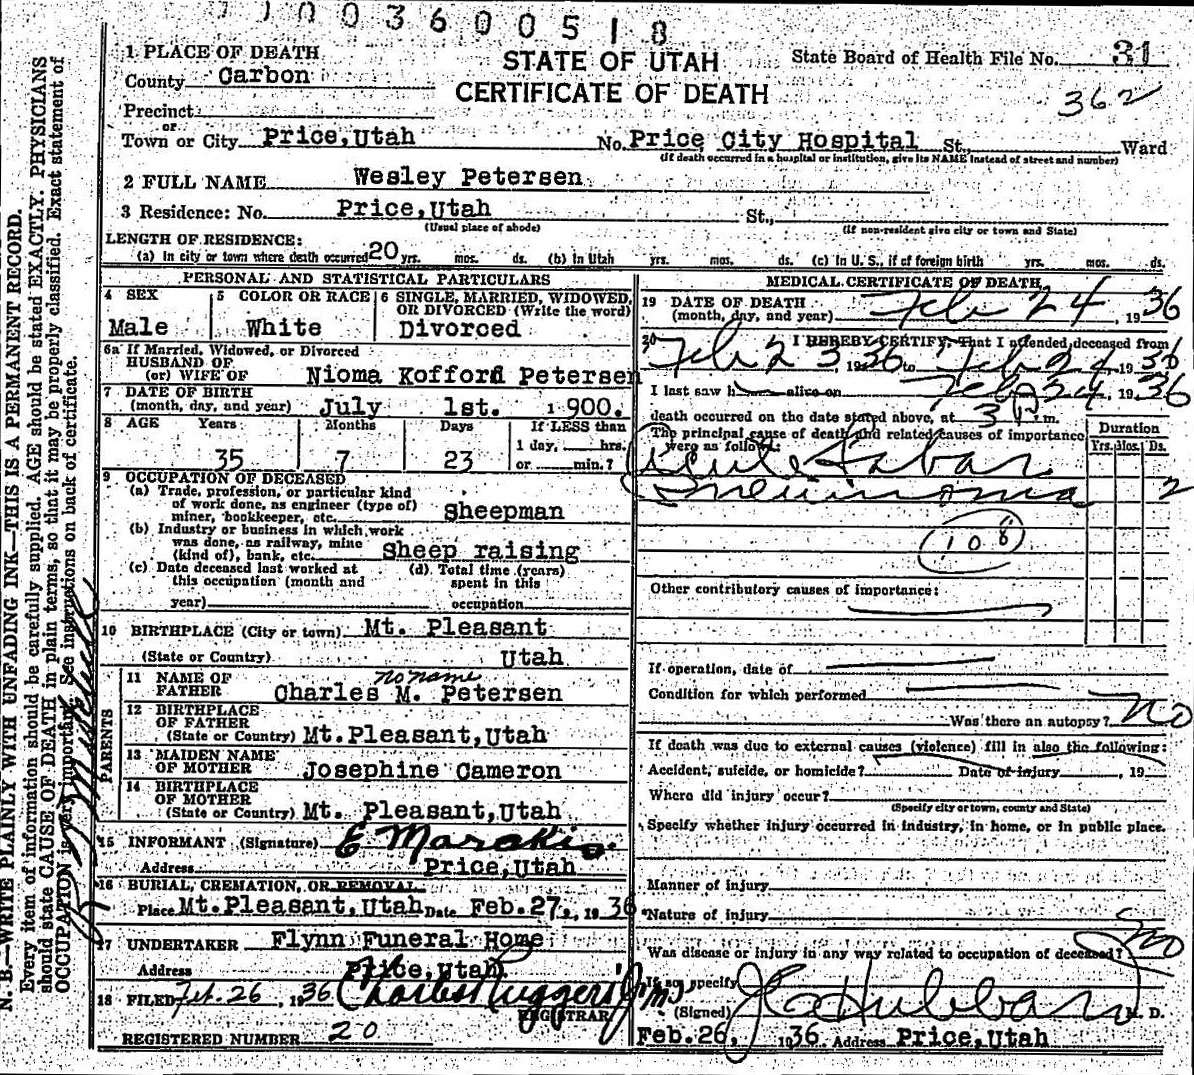 1003600518
1 PLACE OF DEATH
STATE OF UTAH
State Board of Health File No. 31
County Carbon
CERTIFICATE OF DEATH
362
Precinct
or
Town or City Price, Utah No. Price City Hospital St., Ward
(If death occurred in a hospital or institution, give its NAME instead of street and number)
2 FULL NAME Wesley Petersen
3 Residence: No. Price, Utah St.,
(Usual place of abode) (If non-resident give city or town and State)
LENGTH OF RESIDENCE:
(a) In city or town where death occurred 20 yrs. mos. ds. (b) in Utah yrs. mos. ds. (c) in U. S., if of foreign birth yrs. mos. ds.
PERSONAL AND STATISTICAL PARTICULARS
4 SEX
Male
5 COLOR OR RACE
White
6 SINGLE, MARRIED, WIDOWED,
OR DIVORCED (Write the word)
Divorced
6a If Married, Widowed, or Divorced
HUSBAND OF
(or) WIFE OF Nioma Kofford Petersen
7 DATE OF BIRTH
(month, day, and year) July 1st. 1900.
8 AGE Years Months Days If LESS than
1 day, hrs.
35 7 23 or min.?
9 OCCUPATION OF DECEASED
(a) Trade, profession, or particular kind
of work done, as engineer (type of)
miner, bookkeeper, etc. Sheepman
(b) Industry or business in which work
was done, as railway, mine
(kind of), bank, etc. Sheep raising
(c) Date deceased last worked at
this occupation (month and
year)
(d) Total time (years)
spent in this
occupation
10 BIRTHPLACE (City or town) Mt. Pleasant
(State or Country) Utah
PARENTS
11 NAME OF
FATHER
no name
Charles M. Petersen
12 BIRTHPLACE
OF FATHER
(State or Country) Mt. Pleasant, Utah
13 MAIDEN NAME
OF MOTHER Josephine Cameron
14 BIRTHPLACE
OF MOTHER
(State or Country) Mt. Pleasant, Utah
15 INFORMANT (Signature)
Address Price, Utah
16 BURIAL, CREMATION, OR REMOVAL
Place Mt. Pleasant, Utah Date Feb. 27, 1936
17 UNDERTAKER Flynn Funeral Home
Address Price, Utah
18 FILED Feb. 26, 1936 Charles Ruggeri Jr.
REGISTRAR
REGISTERED NUMBER 20
MEDICAL CERTIFICATE OF DEATH
19 DATE OF DEATH
(month, day, and year) Feb 24, 1936
20 I HEREBY CERTIFY, That I attended deceased from
Feb 23, 1936 to Feb 24, 1936
I last saw h alive on Feb 24, 1936
death occurred on the date stated above, at 3 P m.
The principal cause of death and related causes of importance
were as follows:
Duration
Yrs. Mos. Ds.
Acute Lobar
Pneumonia 2
108
Other contributory causes of importance:
If operation, date of
Condition for which performed
Was there an autopsy? No
If death was due to external causes (violence) fill in also the following:
Accident, suicide, or homicide? Date of injury , 19
Where did injury occur?
(Specify city or town, county and State)
Specify whether injury occurred in industry, in home, or in public place.
Manner of injury
Nature of injury
Was disease or injury in any way related to occupation of deceased? No
If so, specify
(Signed) Hubbard M. D.
Feb. 26, 1936 Address Price, Utah
N. B.—WRITE PLAINLY WITH UNFADING INK—THIS IS A PERMANENT RECORD.
Every item of information should be carefully supplied. AGE should be stated EXACTLY. PHYSICIANS
should state CAUSE OF DEATH in plain terms, so that it may be properly classified. Exact statement of
OCCUPATION is very important. See instructions on back of certificate.